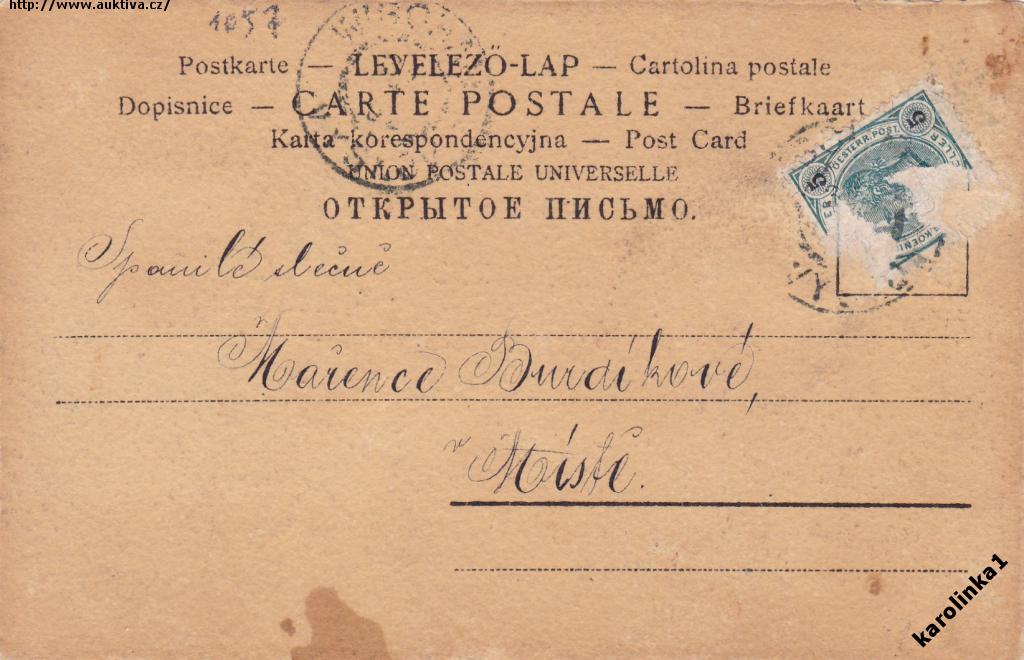 http://www.auktiva.cz/
1057
Postkarte — LEVELEZŐ-LAP — Cartolina postale
Dopisnice — CARTE POSTALE — Briefkaart
Karta korespondencyjna — Post Card
UNION POSTALE UNIVERSELLE
ОТКРЫТОЕ ПИСЬМО.
5 OESTERR. POST. 5
Spanilé slečně
Mařence Burdíkové,
v Místě.
karolinka1